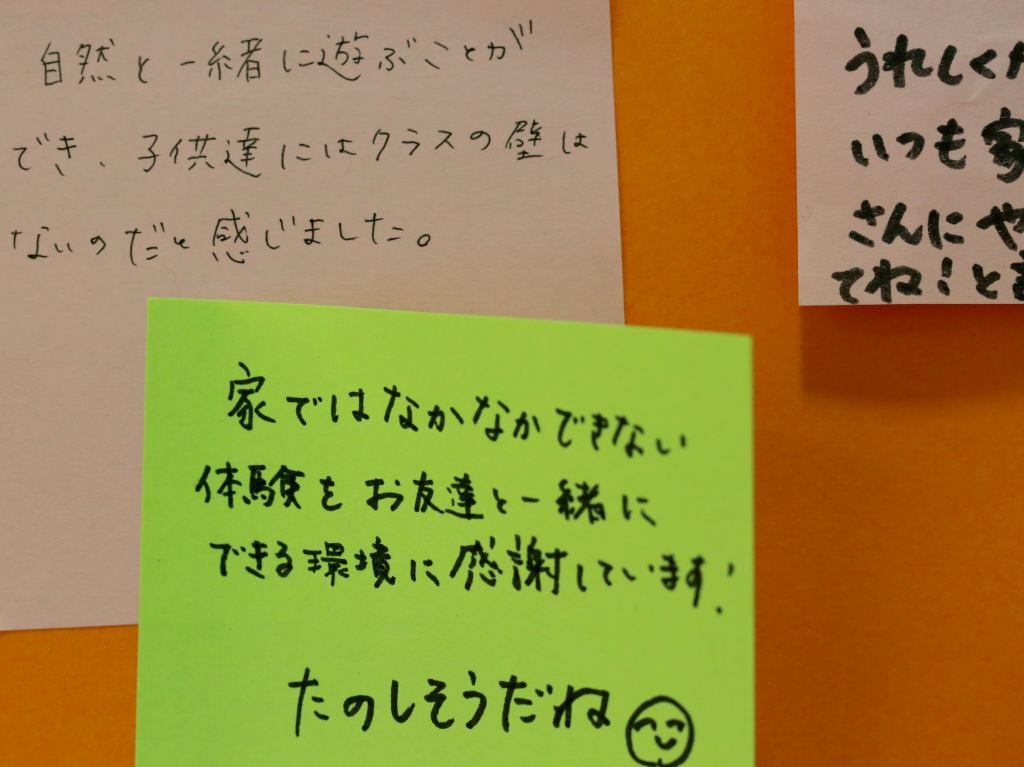 自然と一緒に遊ぶことが
でき、子供達にはクラスの壁は
ないのだと感じました。
うれしくた
いつも家
さんにや
てね！と
家ではなかなかできない
体験をお友達と一緒に
できる環境に感謝しています！
たのしそうだね